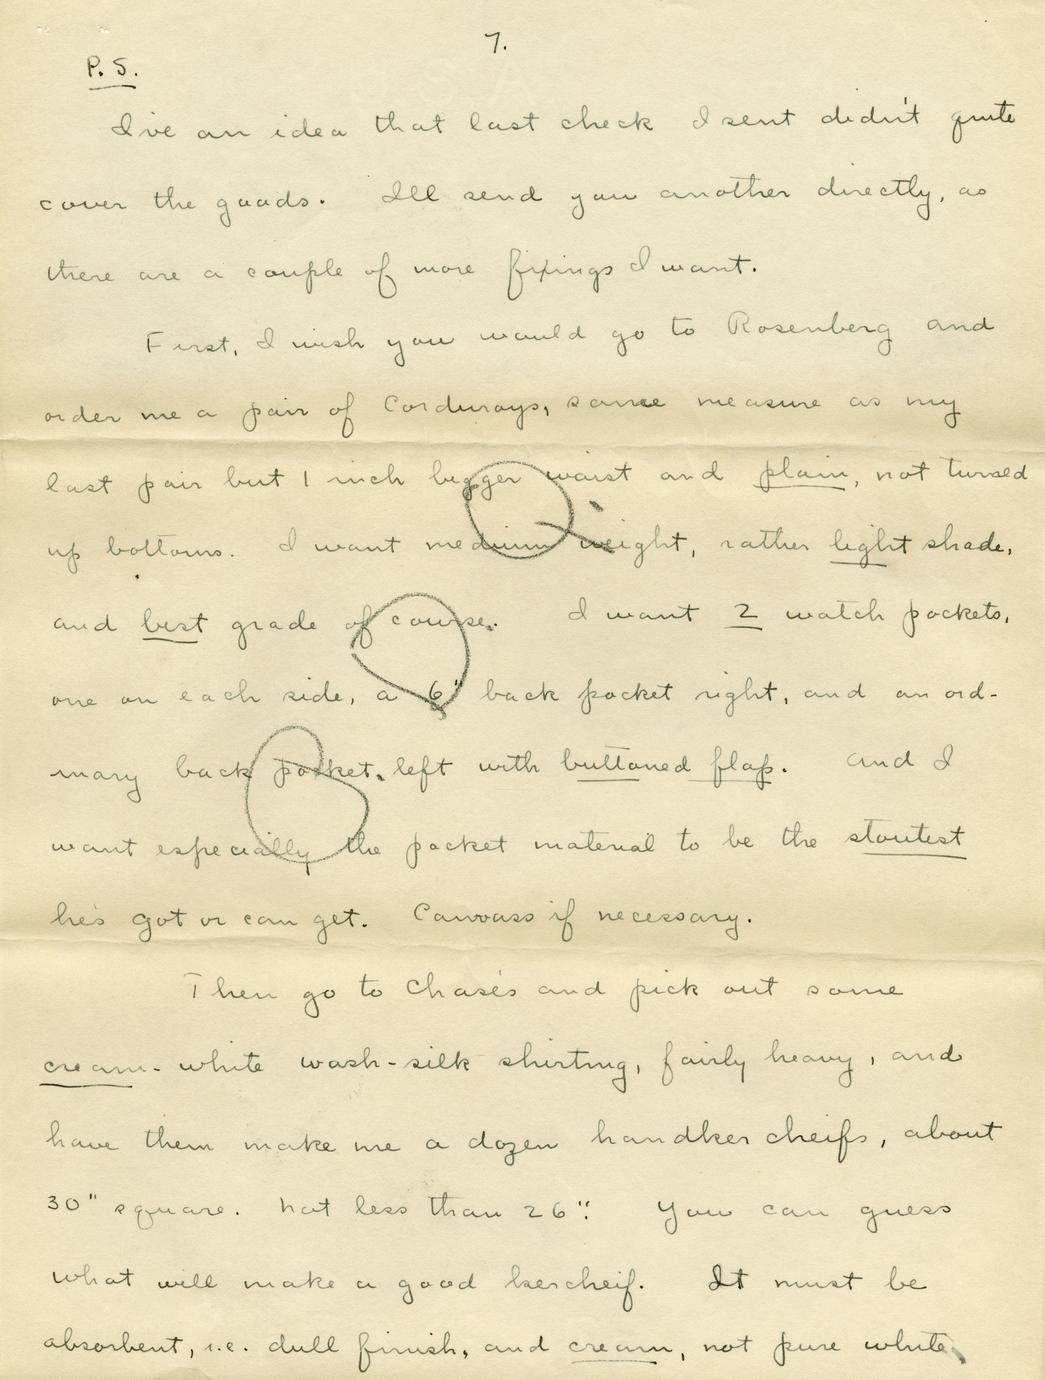 7.
P.S.
I've an idea that last check I sent didn't quite
cover the goods. I'll send you another directly, as
there are a couple of more fixings I want.
First, I wish you would go to Rosenberg and
order me a pair of Corduroys, same measure as my
last pair but 1 inch bigger waist and plain, not turned
up bottoms. I want medium weight, rather light shade,
and best grade of course. I want 2 watch pockets,
one on each side, a 6" back pocket right, and an ord-
inary back pocket left with buttoned flap. And I
want especially the pocket material to be the stoutest
he's got or can get. Canvass if necessary.
Then go to Chase's and pick out some
cream-white wash-silk shirting, fairly heavy, and
have them make me a dozen handkercheifs, about
30" square. Not less than 26". You can guess
what will make a good kercheif. It must be
absorbent, i.e. dull finish, and cream, not pure white.